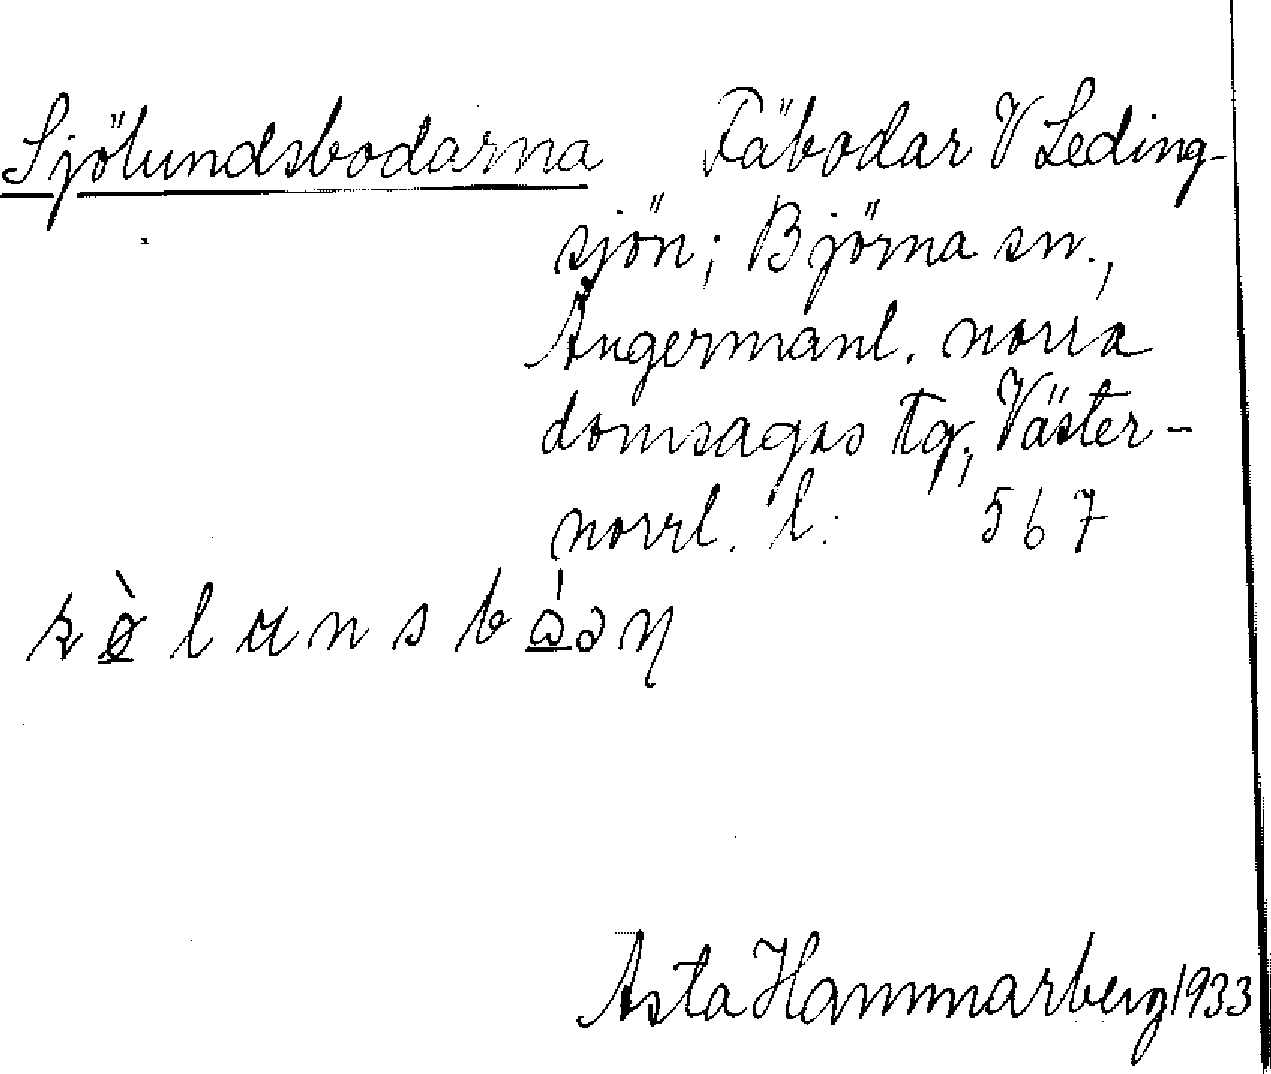 Sjölundsbodarna Fäbodar V Leding-
sjön; Björna sn.,
Ångermanl. norra
domsagas tg, Väster-
norrl. l. 567
Asta Hammarberg 1933